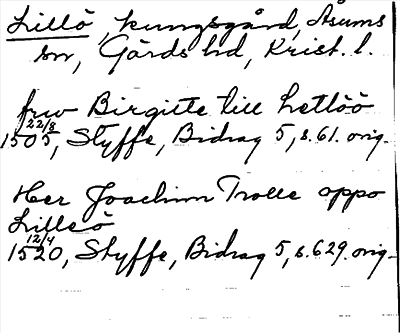 Lillö, kungsgård, Åsums
sn, Gärds hd, Krist. l.
frw Birgitte till Letlöö
22/8
1505, Styffe, Bidrag 5, s. 61. orig.
Her Joachim Trolle oppo
Lilleö
12/4
1520, Styffe, Bidrag 5, s. 629. orig.